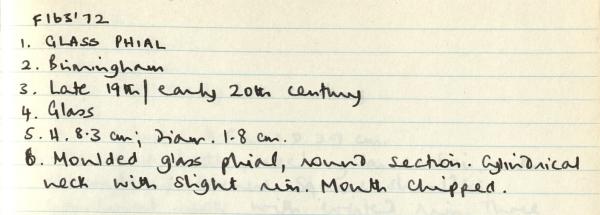 F165'72
1. GLASS PHIAL
2. Birmingham
3. Late 19th / early 20th century
4. Glass
5. H. 8.3 cm; Diam. 1.8 cm.
6. Moulded glass phial, round section. Cylindrical
neck with slight rim. Mouth chipped.